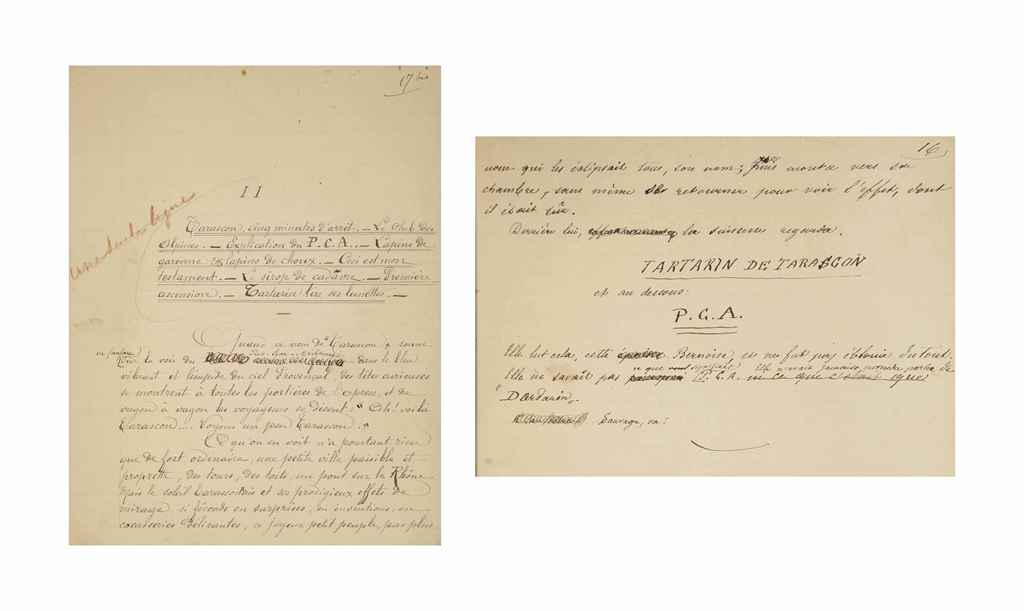 17 bis
II
Tarascon, cinq minutes d'arrêt. — Le Club des
Alpines. — Explication du P.C.A. — Lapins de
garenne et lapins de choux. — Ceci est mon
testament. — Le sirop de cadavre. — Première
ascension. — Tartarin tire ses lunettes. —
Quand ce nom de Tarascon
la voix du dans le bleu
vibrant et limpide du ciel Provençal, des têtes curieuses
se montrent à toutes les portières de l'express, et de
wagon à wagon les voyageurs se disent: "Ah! voilà
Tarascon.... Voyons un peu Tarascon."
Ce qu'on en voit n'a pourtant rien
que de fort ordinaire, une petite ville paisible et
proprette, des tours, des toits, un pont sur le Rhône.
Mais le soleil Tarasconnais et ses prodigieux effets de
mirage, si féconds en surprises, en inventions, en
cocasseries délirantes, ce joyeux petit peuple, pas plus
16
nom qui les éclipsait tous, son nom; puis monta vers sa
chambre, sans même se retourner pour voir l'effet, dont
il était sûr.
Derrière lui, la suissesse regarda.
TARTARIN DE TARASCON
et au dessous:
P.C.A.
Elle lut cela, cette Bernoise, et ne fut pas éblouie du tout.
Elle ne savait pas ce que P.C.A. Elle n'avait jamais entendu parler de
"Dardarin".
Sauvage, va!